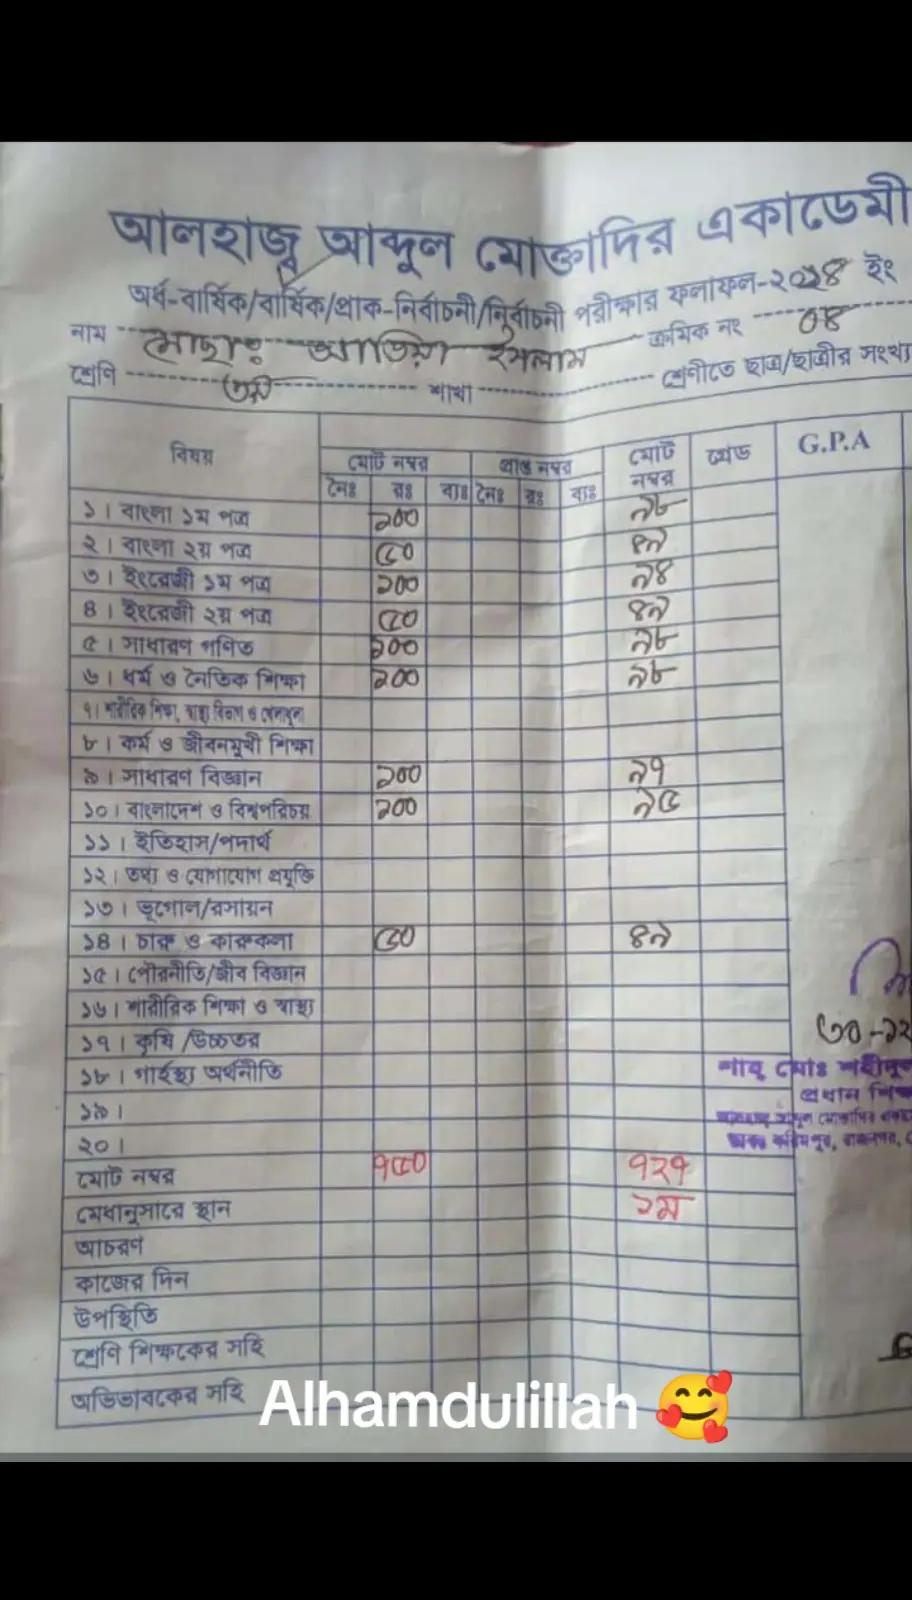 আলহাজ্ব আব্দুল মোক্তাদির একাডেমী
অর্ধ-বার্ষিক/বার্ষিক/প্রাক-নির্বাচনী/নির্বাচনী পরীক্ষার ফলাফল-২০২৪ ইং
নাম মোছাঃ আতিয়া ইসলাম ক্রমিক নং ০৪
শ্রেণি ৩য় শাখা শ্রেণীতে ছাত্র/ছাত্রীর সংখ্যা
বিষয় মোট নম্বর প্রাপ্ত নম্বর মোট নম্বর গ্রেড G.P.A
নৈঃ রঃ ব্যঃ নৈঃ রঃ ব্যঃ
১। বাংলা ১ম পত্র ১০০ ৯৮
২। বাংলা ২য় পত্র ৫০ ৪৯
৩। ইংরেজী ১ম পত্র ১০০ ৯৪
৪। ইংরেজী ২য় পত্র ৫০ ৪৯
৫। সাধারণ গণিত ১০০ ৯৮
৬। ধর্ম ও নৈতিক শিক্ষা ১০০ ৯৮
৭। শারীরিক শিক্ষা, স্বাস্থ্য বিজ্ঞান ও খেলাধুলা
৮। কর্ম ও জীবনমুখী শিক্ষা
৯। সাধারণ বিজ্ঞান ১০০ ৯৭
১০। বাংলাদেশ ও বিশ্বপরিচয় ১০০ ৯৫
১১। ইতিহাস/পদার্থ
১২। তথ্য ও যোগাযোগ প্রযুক্তি
১৩। ভূগোল/রসায়ন
১৪। চারু ও কারুকলা ৫০ ৪৯
১৫। পৌরনীতি/জীব বিজ্ঞান
১৬। শারীরিক শিক্ষা ও স্বাস্থ্য
১৭। কৃষি /উচ্চতর
৩০-১২
১৮। গার্হস্থ্য অর্থনীতি
মোঃ
১৯।
প্রধান
২০।
মোট নম্বর ৭৫০ ৭২৭
মেধানুসারে স্থান ১ম
আচরণ
কাজের দিন
উপস্থিতি
শ্রেণি শিক্ষকের সহি
অভিভাবকের সহি
Alhamdulillah 🥰